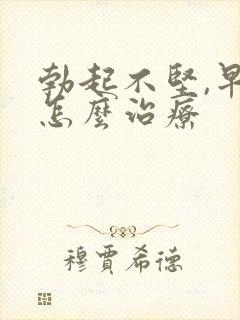 勃起不堅,早
怎麼治療
穆賈希德